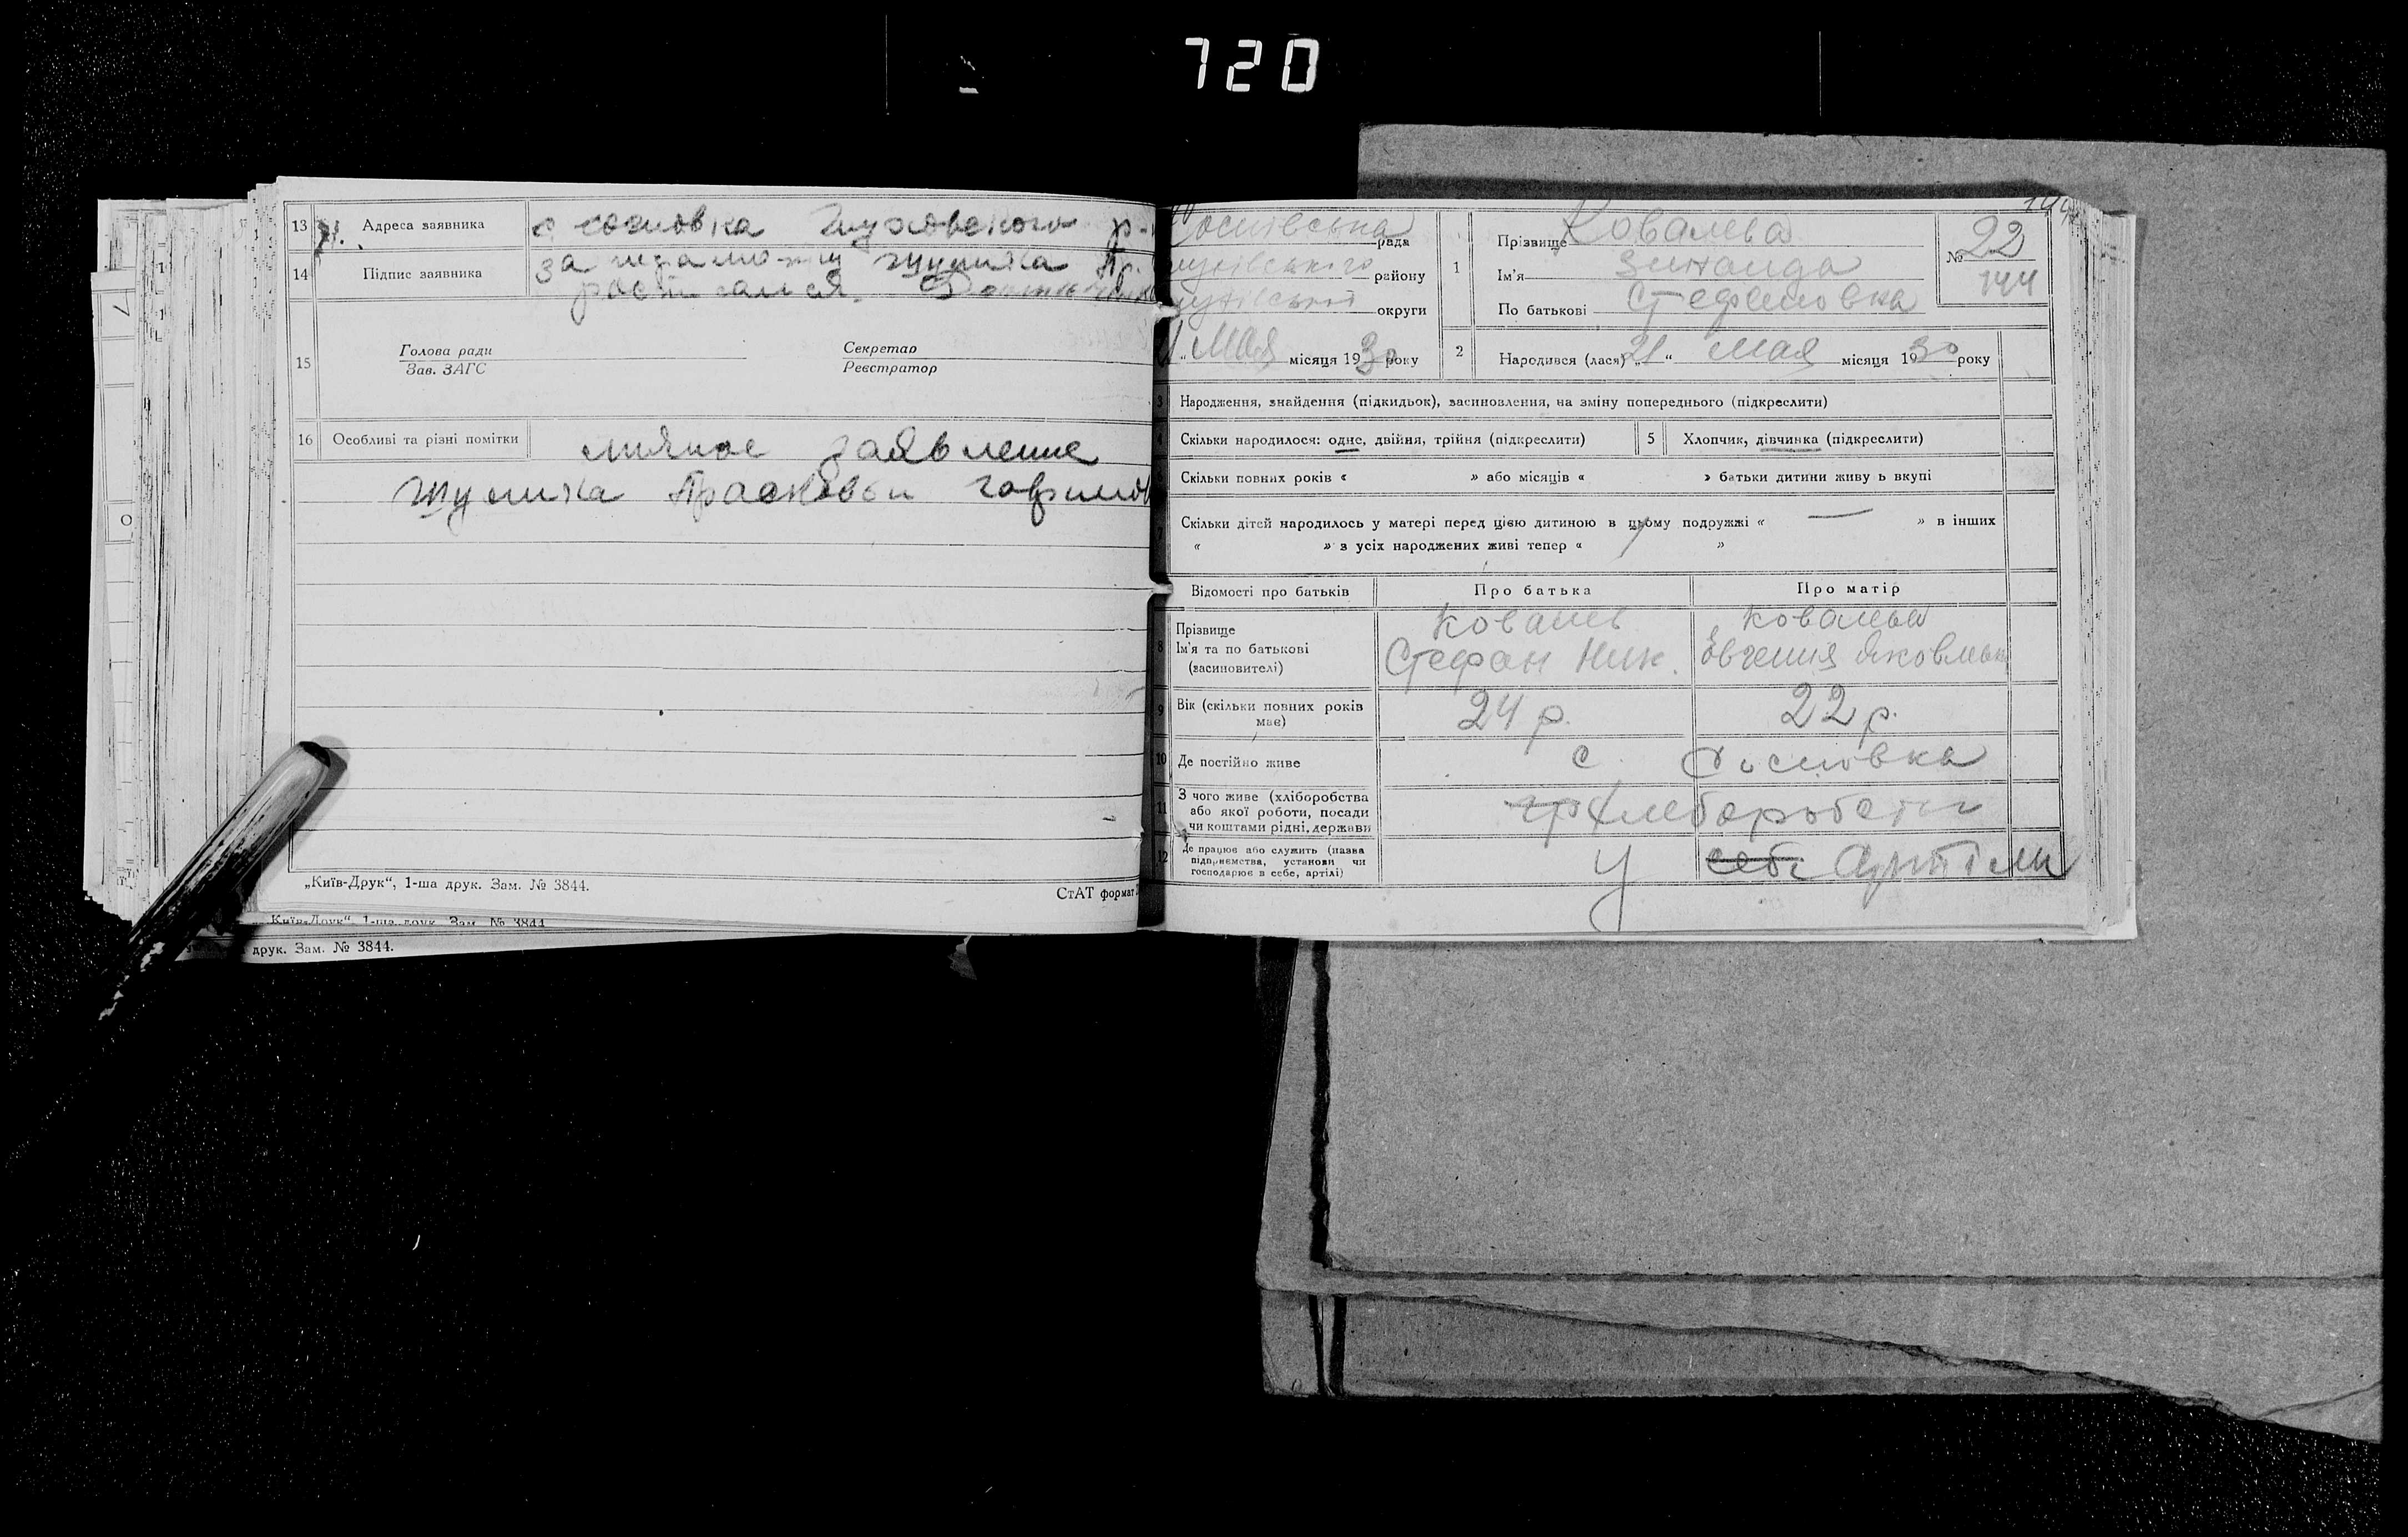 720
13 Адреса заявника с сосновка Глуховского р-
14 Підпис заявника за неграмотну Жупика Пр.
росписался
15 Голова ради Секретар
Зав. ЗАГС Реєстратор
16 Особливі та різні помітки личное заявление
Прасковьи
„Київ-Друк“, 1-ша друк. Зам. № 3844.
СтАТ формат
Київ-Друк“, 1-ша друк. Зам. № 3844
друк. Зам. № 3844.
рада
району
округи
Мая місяця 1930 року
1 Прізвище Ковалева
Ім'я Зинаида
По батькові Стефановна
№ 22
144
2 Народився (лася) „21“ Мая місяця 1930 року
3 Народження, знайдення (підкидьок), засиновлення, на зміну попереднього (підкреслити)
4 Скільки народилося: одне, двійня, трійня (підкреслити) 5 Хлопчик, дівчинка (підкреслити)
Скільки повних років « » або місяців « » батьки дитини живу ь вкупі
7 Скільки дітей народилось у матері перед цією дитиною в цьому подружжі « — » в інших
« » з усіх народжених живі тепер « »
Відомості про батьків Про батька Про матір
8 Прізвище Ковалев Ковалева
Ім'я та по батькові Стефан Ник. Евгения Яковлевна
(засиновителі)
9 Вік (скільки повних років має) 24 р. 22 р.
10 Де постійно живе с. Сосновка
11 З чого живе (хліборобства
або якої роботи, посади
чи коштами рідні, держави
12 Де працює або служить (назва
підприємства, установи чи
господарює в себе, артілі)
у себе Артіли